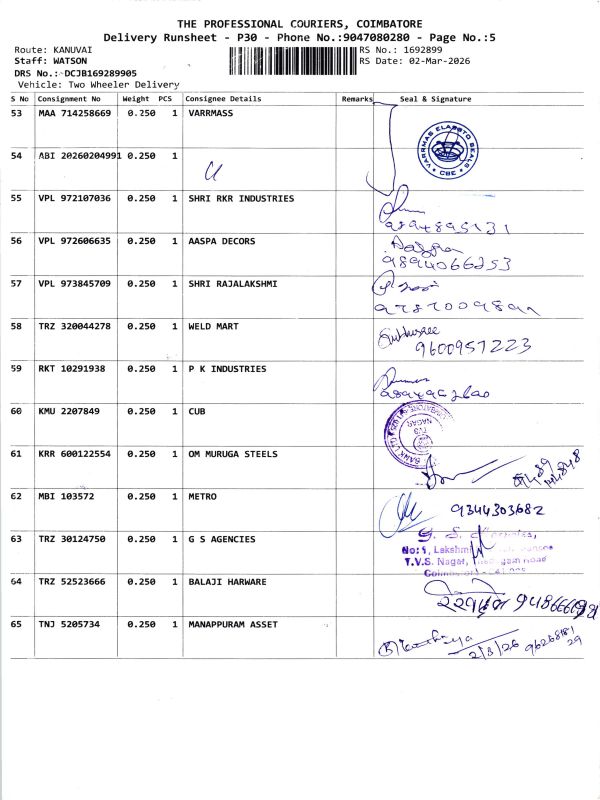 THE PROFESSIONAL COURIERS, COIMBATORE
Delivery Runsheet - P30 - Phone No.:9047080280 - Page No.:5
Route: KANUVAI RS No.: 1692899
Staff: WATSON RS Date: 02-Mar-2026
DRS No.: DCJB169289905
Vehicle: Two Wheeler Delivery
S No Consignment No Weight PCS Consignee Details Remarks Seal & Signature
53 MAA 714258669 0.250 1 VARRMASS
54 ABI 20260204991 0.250 1
55 VPL 972107036 0.250 1 SHRI RKR INDUSTRIES
56 VPL 972606635 0.250 1 AASPA DECORS
9894066253
57 VPL 973845709 0.250 1 SHRI RAJALAKSHMI
58 TRZ 320044278 0.250 1 WELD MART
9600957223
59 RKT 10291938 0.250 1 P K INDUSTRIES
60 KMU 2207849 0.250 1 CUB
61 KRR 600122554 0.250 1 OM MURUGA STEELS
62 MBI 103572 0.250 1 METRO
9344303682
63 TRZ 30124750 0.250 1 G S AGENCIES
G. S.
No: 1, Lakshmi
T.V.S. Nagar,
64 TRZ 52523666 0.250 1 BALAJI HARWARE
65 TNJ 5205734 0.250 1 MANAPPURAM ASSET
2/3/26